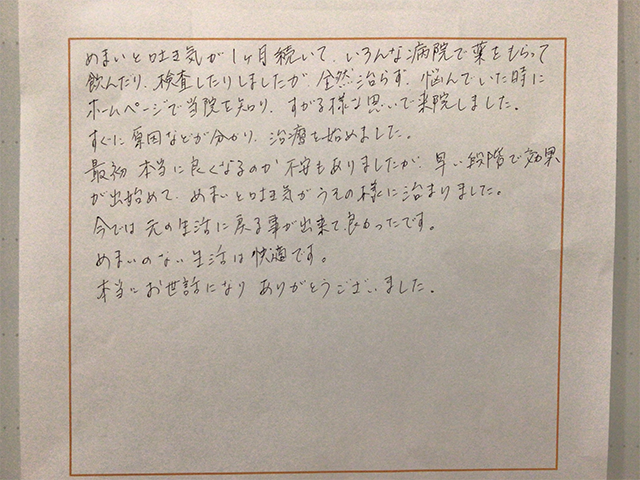 めまいと吐き気が1ヶ月続いて、いろんな病院で薬をもらって
飲んだり、検査したりしましたが、全然治らず、悩んでいた時に
ホームページで当院を知り、すがる様な思いで来院しました。
すぐに原因などが分かり、治療を始めました。
最初 本当に良くなるのか 不安もありましたが、早い段階で効果
が出始めて、めまいと吐き気がうその様に治まりました。
今では 元の生活に戻る事が出来て良かったです。
めまいのない生活は快適です。
本当にお世話になり ありがとうございました。